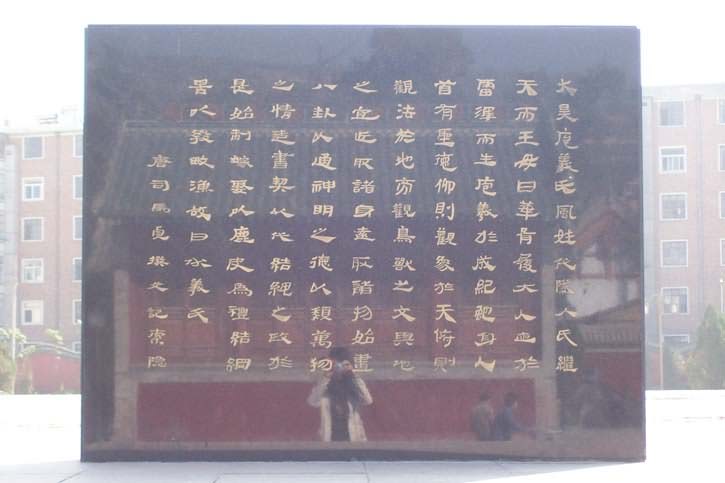 太昊庖羲氏風姓代燧人氏繼
天而王母曰華胥履大人迹於
雷澤而生庖羲於成紀虵身人
首有聖德仰則觀象於天俯則
觀法於地旁觀鳥獸之文與地
之宜近取諸身遠取諸物始畫
八卦以通神明之德以類萬物
之情造書契以代結繩之政於
是始制嫁娶以鹿皮為禮結網
罟以教畋漁故曰伏羲氏
唐司馬貞撰史記索隱